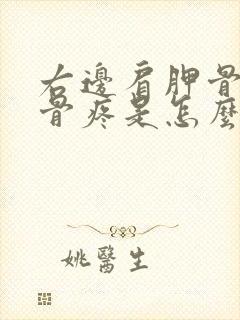 右邊肩胛骨
骨疼是怎麼
姚醫生